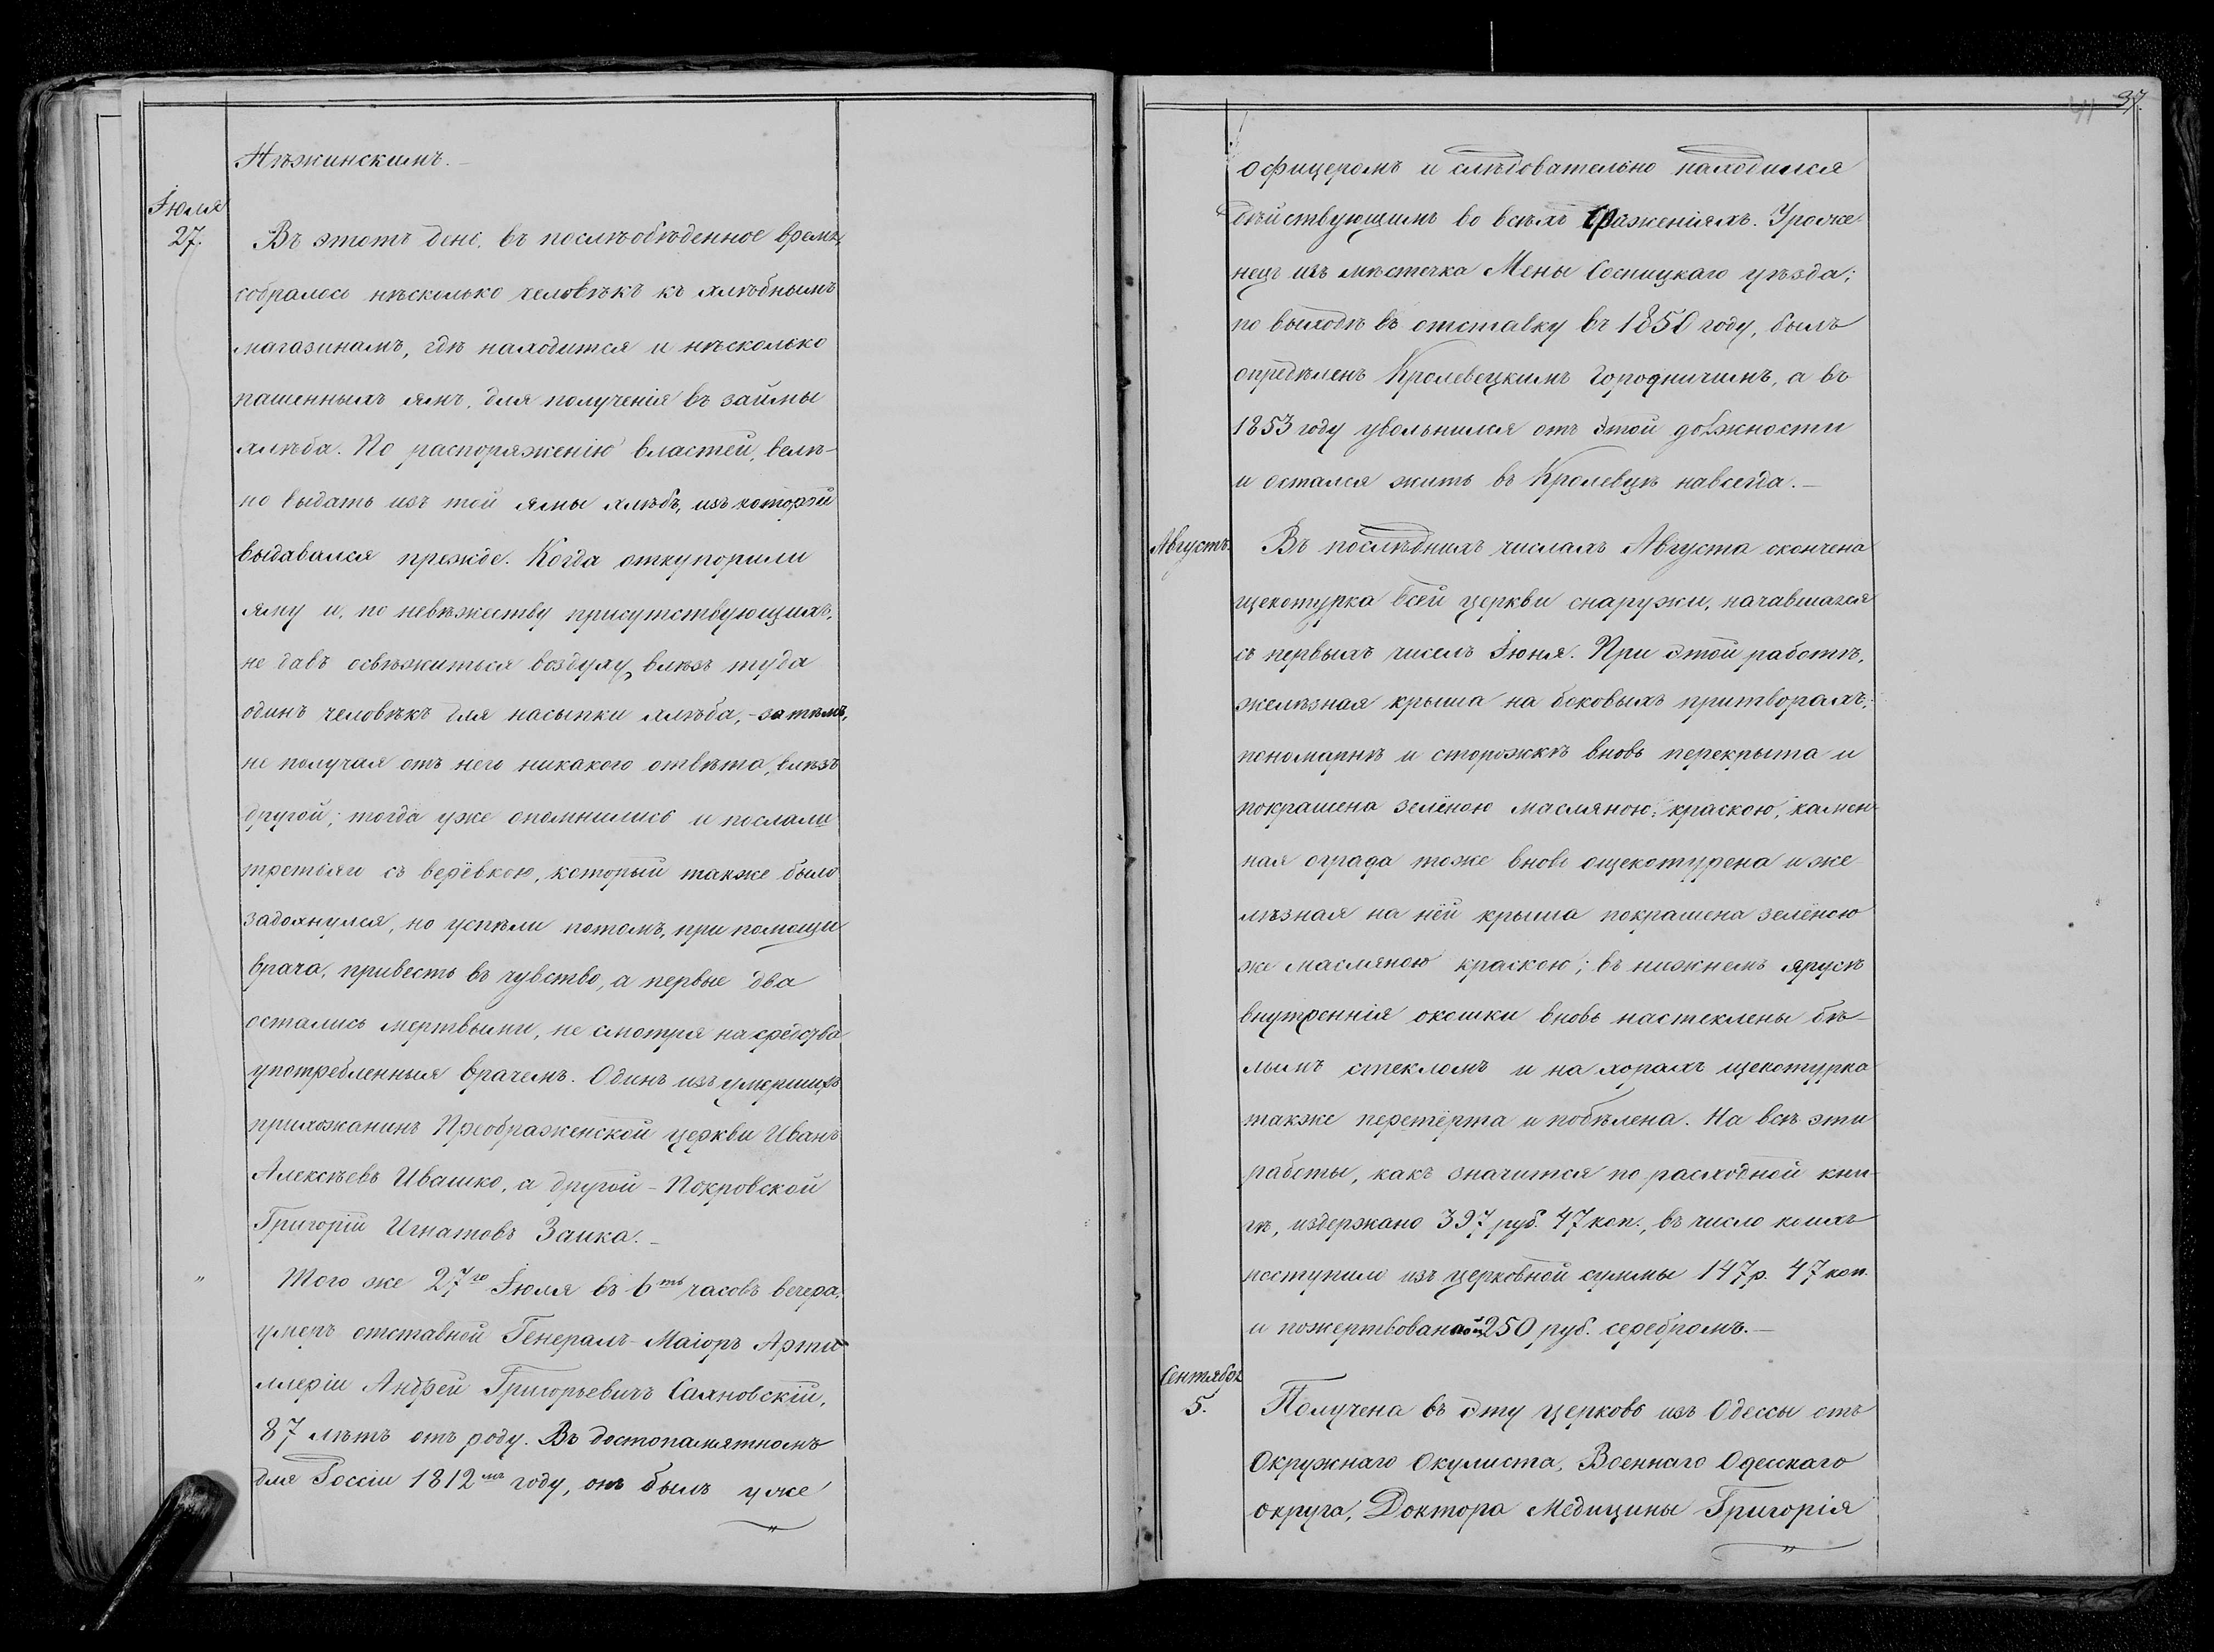 Нѣжинскимъ. —
Іюля
27.
Въ этотъ день, въ послѣобѣденное время,
собралось нѣсколько человѣкъ къ хлѣбнымъ
магазинамъ, гдѣ находится и нѣсколько
пашенныхъ ямъ, для полученія въ займы
хлѣба. По распоряженію властей, велѣ-
но выдать изъ той ямы хлѣбъ, изъ которой
выдавался прежде. Когда откупорили
яму и, по невѣжеству присутствующихъ,
не давъ освѣжиться воздуху, влѣзъ туда
одинъ человѣкъ для насыпки хлѣба, – за тѣмъ,
не получая отъ него никакого отвѣта, влѣзъ
другой; тогда уже опомнились и послали
третьяго съ верёвкою, который также было
задохнулся, но успѣли потомъ, при помощи
врача, привесть въ чувство, а первые два
остались мертвыми, не смотря на средства
употребленныя врачемъ. Одинъ изъ умершихъ
прихожанинъ Преображенской церкви Иванъ
Алексѣевъ Ивашко, а другой – Покровской
Григорій Игнатовъ Заика. —
„ Того же 27го Іюля въ 6ть часовъ вечера,
умеръ отставной Генералъ-Маіоръ Арти-
ллеріи Андрей Григорьевичъ Сахновскій,
87 лѣтъ отъ роду. Въ достопамятномъ
для Россіи 1812мъ году, онъ былъ уже
37.
41
офицеромъ и слѣдовательно находился
дѣйствующимъ во всѣхъ сраженіяхъ. Уроже
нецъ изъ мѣстечка Мены Сосницкаго уѣзда;
по выходѣ въ отставку въ 1850 году, былъ
опредѣленъ Кролевецкимъ Городничимъ, а въ
1853 году увольнился отъ этой должности
и остался жить въ Кролевцѣ навсегда. —
Августъ. Въ послѣднихъ числахъ Августа окончена
щекотурка всей церкви снаружи, начавшаяся
съ первыхъ чиселъ Іюня. При этой работѣ,
желѣзная крыша на боковыхъ притворахъ,
пономарнѣ и сторожкѣ вновь перекрыта и
покрашена зелёною масляною краскою, камен-
ная ограда тоже вновь ощекотурена и же
лѣзная на ней крыша покрашена зелёною
же масляною краскою; въ нижнемъ ярусѣ
внутреннія окошки вновь настеклены бѣ-
лымъ стекломъ и на хорахъ щекотурка
также перетёрта и побѣлена. На всѣ эти
работы, какъ значится по расходной кни-
гѣ, издержано 397 руб. 47 коп., въ число коихъ
поступило изъ церковной суммы 147 р. 47 коп.
и пожертвованной 250 руб. серебромъ. —
Сентябрь
5. Получена въ эту церковь изъ Одессы отъ
Окружнаго Окулиста, Военнаго Одесскаго
округа, Доктора Медицины Григорія